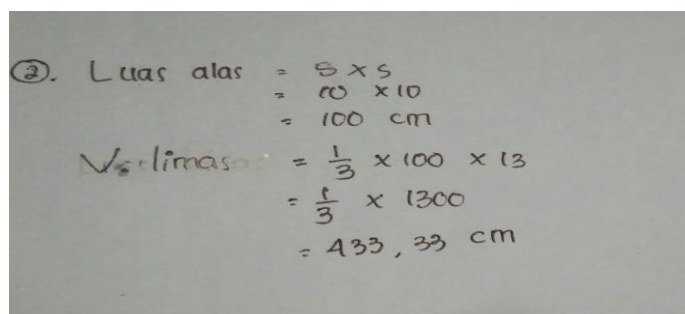 ②. Luas alas = s x s
= 10 x 10
= 100 cm
V. limas = 1/3 x 100 x 13
= 1/3 x 1300
= 433,33 cm